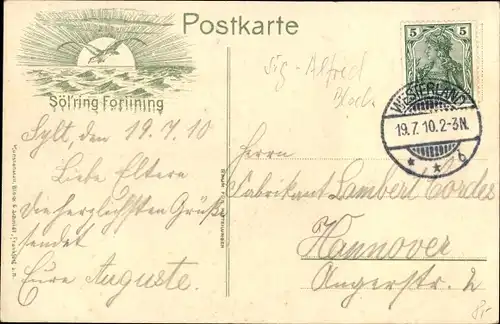 Postkarte
Söl'ring Foriining
Sylt, den 19.7.10
Liebe Eltern
die herzlichsten Grüße
sendet
Eure Auguste.
Sig- Alfred
5 5
WESTERLAND
19.7.10.2-3N.
* * b
Herrn
Fabrikant Lambert Cordes
Hannover
Angerstr. 2
8,-